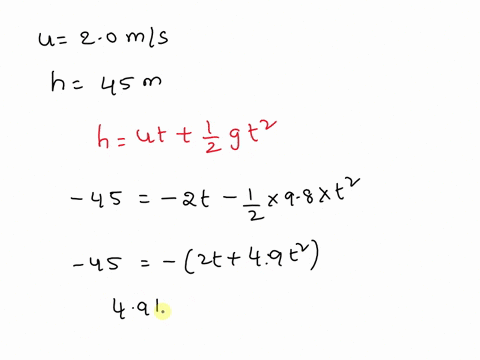 u = 2.0 m/s
h = 45 m
h = ut + 1/2 gt²
-45 = -2t - 1/2 × 9.8 × t²
-45 = -(2t + 4.9t²)
4.9